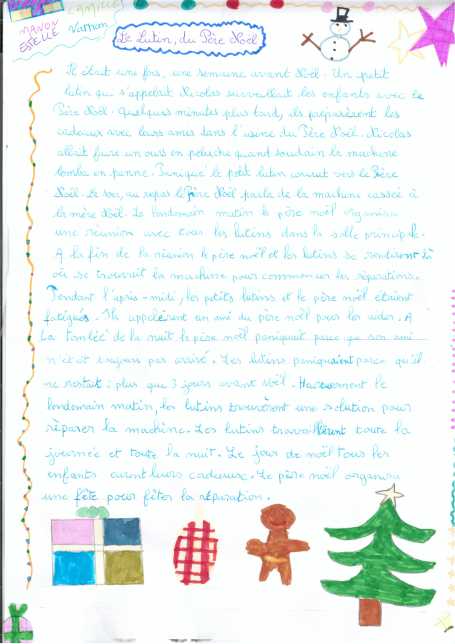 CAMILLE
MANON
ESTELLE
Le Lutin, du Père Noël
Il était une fois, une semaine avant Noël. Un petit
lutin qui s'appelait Nicolas surveillait les enfants avec le
Père Noël. Quelques minutes plus tard, ils préparèrent les
cadeaux avec leurs amis dans l'usine du Père Noël. Nicolas
allait faire un ours en peluche quand soudain la machine
tomba en panne. Paniqué le petit lutin courut vers le Père
Noël. Le soir, au repas le Père Noël parla de la machine cassée à
la mère Noël. Le lendemain matin le père noël organisa
une réunion avec tous les lutins dans la salle principale.
A la fin de la réunion le père noël et les lutins se rendirent là
où se trouvait la machine pour commencer les réparations.
Pendant l'après-midi, les petits lutins et le père noël étaient
fatigués. Ils appelèrent un ami du père noël pour les aider. A
la tombée de la nuit le père noël paniquait parce que son ami
n'était toujours pas arrivé. Les lutins paniquaient parce qu'il
ne restait plus que 3 jours avant noël. Heureusement le
lendemain matin, les lutins trouvèrent une solution pour
réparer la machine. Les lutins travaillèrent toute la
journée et toute la nuit. Le jour de noël tous les
enfants eurent leurs cadeaux. Le père noël organisa
une fête pour fêter la réparation.